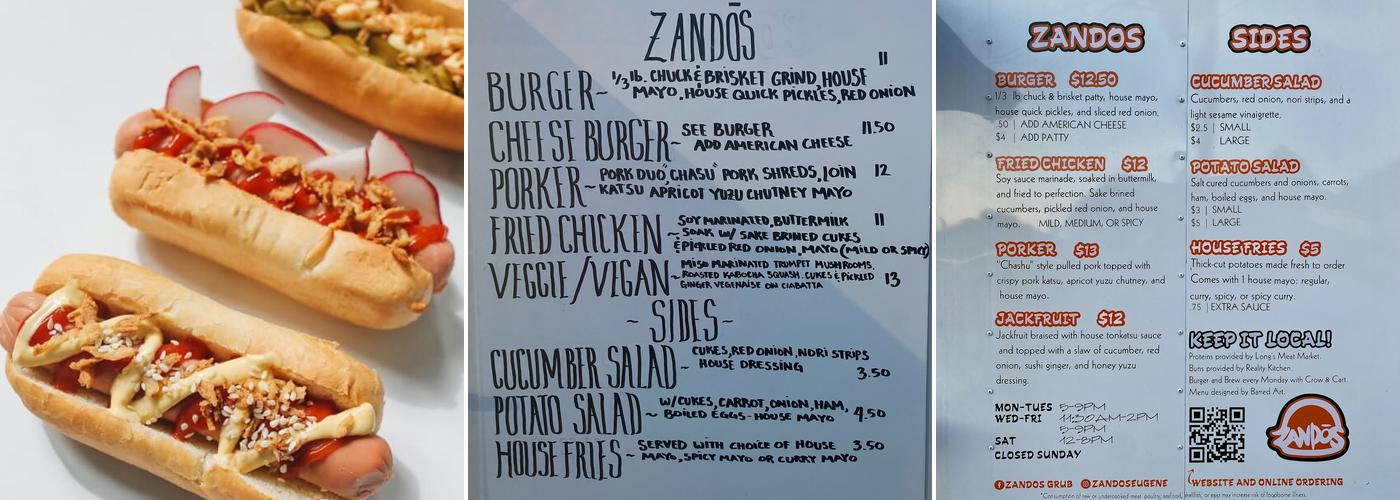 ZANDŌS
BURGER~ 1/3 lb. CHUCK & BRISKET GRIND, HOUSE 11
MAYO, HOUSE QUICK PICKLES, RED ONION
CHEESE BURGER~ SEE BURGER 11.50
ADD AMERICAN CHEESE
PORKER~ PORK DUO, "CHASU" PORK SHREDS, JOIN 12
KATSU APRICOT YUZU CHUTNEY MAYO
FRIED CHICKEN~ SOY MARINATED, BUTTERMILK 11
SOAK W/ SAKE BRINED CUKES
& PICKLED RED ONION, MAYO (MILD OR SPICY)
VEGGIE/VEGAN~ MISO MARINATED TRUMPET MUSHROOMS,
ROASTED KABOCHA SQUASH. CUKES & PICKLED 13
GINGER VEGENAISE ON CIABATTA
~ SIDES ~
CUCUMBER SALAD~ CUKES, RED ONION, NORI STRIPS
HOUSE DRESSING 3.50
POTATO SALAD~ W/CUKES, CARROT, ONION, HAM, 4.50
BOILED EGGS - HOUSE MAYO
HOUSE FRIES~ SERVED WITH CHOICE OF HOUSE 3.50
MAYO, SPICY MAYO OR CURRY MAYO
ZANDOS
BURGER $12.50
1/3 lb chuck & brisket patty, house mayo,
house quick pickles, and sliced red onion.
.50 | ADD AMERICAN CHEESE
$4 | ADD PATTY
FRIED CHICKEN $12
Soy sauce marinade, soaked in buttermilk,
and fried to perfection. Sake brined
cucumbers, pickled red onion, and house
mayo. MILD, MEDIUM, OR SPICY
PORKER $13
"Chashu" style pulled pork topped with
crispy pork katsu, apricot yuzu chutney, and
house mayo.
JACKFRUIT $12
Jackfruit braised with house tonkatsu sauce
and topped with a slaw of cucumber, red
onion, sushi ginger, and honey yuzu
dressing.
MON-TUES 5-9PM
WED-FRI 11:30AM-2PM
5-9PM
SAT 12-8PM
CLOSED SUNDAY
ZANDOS GRUB ZANDOSEUGENE
SIDES
CUCUMBER SALAD
Cucumbers, red onion, nori strips, and a
light sesame vinaigrette.
$2.5 | SMALL
$4 LARGE
POTATO SALAD
Salt cured cucumbers and onions, carrots,
ham, boiled eggs, and house mayo.
$3 | SMALL
$5 | LARGE
HOUSE FRIES $5
Thick-cut potatoes made fresh to order
Comes with 1 house mayo: regular,
curry, spicy, or spicy curry.
.75 | EXTRA SAUCE
KEEP IT LOCAL!
Proteins provided by Long's Meat Market.
Buns provided by Reality Kitchen.
Burger and Brew every Monday with Crow & Cart.
Menu designed by Barred Art.
ZANDŌS
WEBSITE AND ONLINE ORDERING
*Consumption of raw or undercooked meat, poultry, seafood, shellfish, or eggs may increase risk of foodborne illness.